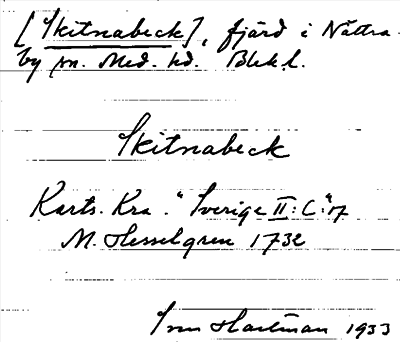 [Skitnabeck], fjärd i Nättra-
by sn. Med. hd. Blek.l.
Skitnabeck
Karts. Kra. "Sverige II:C:"17
M. Hesselgren 1732
Sven Hartman 1933